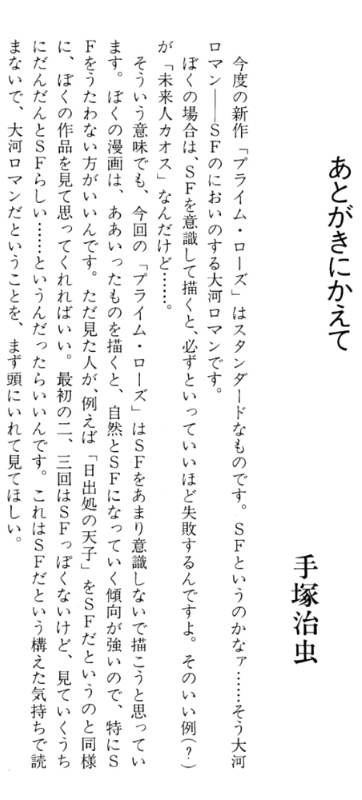 あとがきにかえて
手塚治虫
今度の新作「プライム・ローズ」はスタンダードなものです。ＳＦというのかなァ……そう大河
ロマン――ＳＦのにおいのする大河ロマンです。
ぼくの場合は、ＳＦを意識して描くと、必ずといっていいほど失敗するんですよ。そのいい例（？）
が「未来人カオス」なんだけど……。
そういう意味でも、今回の「プライム・ローズ」はＳＦをあまり意識しないで描こうと思ってい
ます。ぼくの漫画は、ああいったものを描くと、自然とＳＦになっていく傾向が強いので、特にＳ
Ｆをうたわない方がいいんです。ただ見た人が、例えば「日出処の天子」をＳＦだというのと同様
に、ぼくの作品を見て思ってくれればいい。最初の二、三回はＳＦっぽくないけど、見ていくうち
にだんだんとＳＦらしい……というんだったらいいんです。これはＳＦだという構えた気持ちで読
まないで、大河ロマンだということを、まず頭にいれて見てほしい。